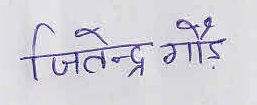 जितेन्द्र गौड़